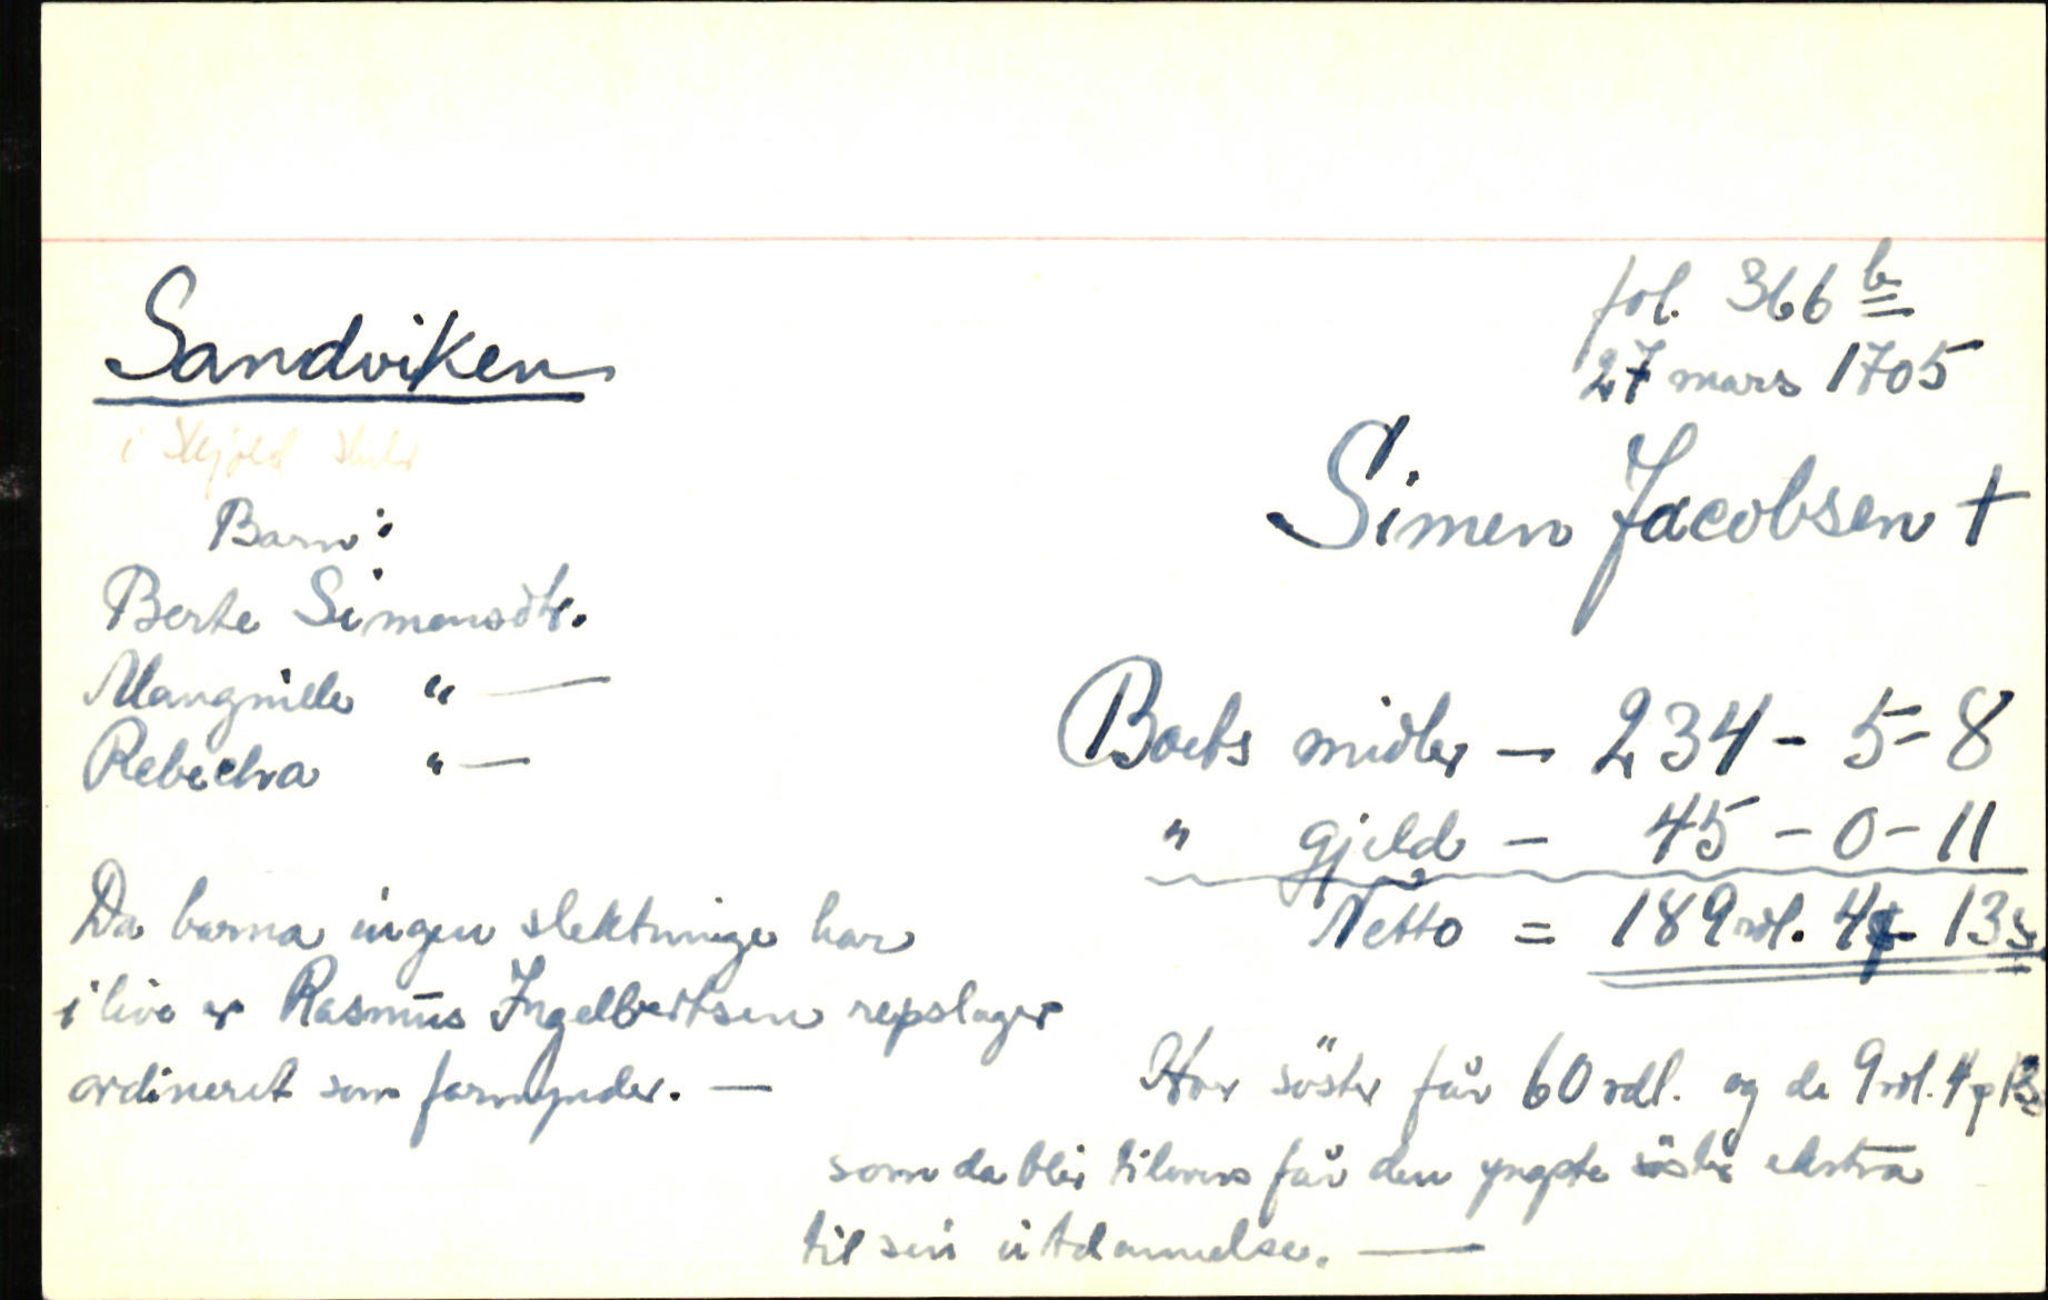 fol. 366 b
27 mars 1705
Sandviken
i Skjold
Simen Jacobsen †
Barn:
Berte Simensdtr.
Mangnille " —
Rebechra " —
Boets midler — 234 - 5 - 8
" gjeld — 45 - 0 - 11
Netto = 189 rdl. 4 ƒ 13 s
Da barna ingen slektninge har
i live er Rasmus Ingelbertsen repslager
ordineret som formynder. —
Hver söster får 60 rdl. og de 9 rdl. 4 ƒ 13 s
som da blir tilovers får den yngste söster ekstra
til sin utdannelse. —